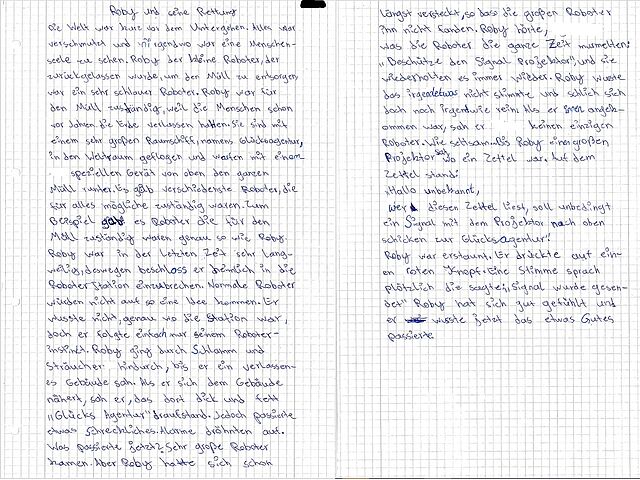 Roby und seine Rettung
Die Welt war kurz vor dem Untergehen. Alles war
verschmutzt und nirgendwo war eine Menschen-
seele zu sehen. Roby der kleine Roboter, der
zurückgelassen wurde, um den Müll zu entsorgen,
war ein sehr schlauer Roboter. Roby war für
den Müll zuständig, weil die Menschen schon
vor Jahren die Erde verlassen hatten. Sie sind mit
einem sehr großen Raumschiff, namens Glücksagentur,
in den Weltraum geflogen und warfen mit einem
speziellen Gerät von oben den ganzen
Müll runter. Es gab verschiedenste Roboter, die
für alles mögliche zuständig waren. Zum
Beispiel gab es Roboter die für den
Müll zuständig waren genau so wie Roby.
Roby war in der letzten Zeit sehr lang-
weilig, deswegen beschloss er heimlich in die
Roboter Station einzubrechen. Normale Roboter
würden nicht auf so eine Idee kommen. Er
wusste nicht, genau wo die Station war,
doch er folgte einfach nur seinem Roboter-
instinct. Roby ging durch Schlamm und
Sträucher hindurch, bis er ein verlassen-
es Gebäude sah. Als er sich dem Gebäude
nähert, sah er, das dort dick und fett
"Glücks Agentur" draufstand. Jedoch passierte
etwas schreckliches. Alarme dröhnten auf.
Was passierte jetzt? Sehr große Roboter
kamen. Aber Roby hatte sich schon
längst versteckt, so das die großen Roboter
ihn nicht fanden. Roby hörte,
was die Roboter die ganze Zeit murmelten:
"Beschütze den Signal Projektor", und sie
wiederholten es immer wieder. Roby wusste
das irgendetwas nicht stimmte und schlich sich
doch noch irgendwie rein. Als er angek-
ommen war, sah er keinen einzigen
Roboter. Wie seltsam. Bis Roby einen großen
Projektor sah wo ein Zettel war. Auf dem
Zettel stand:
"Hallo unbekannt,
wer diesen Zettel liest, soll unbedingt
ein Signal mit dem Projektor nach oben
schicken zur Glücksagentur!"
Roby war erstaunt. Er drückte auf ein-
en roten Knopf. Eine Stimme sprach
plötzlich die sagte: "Signal wurde gesen-
det" Roby hat sich gut gefühlt und
er wusste jetzt das etwas Gutes
passierte